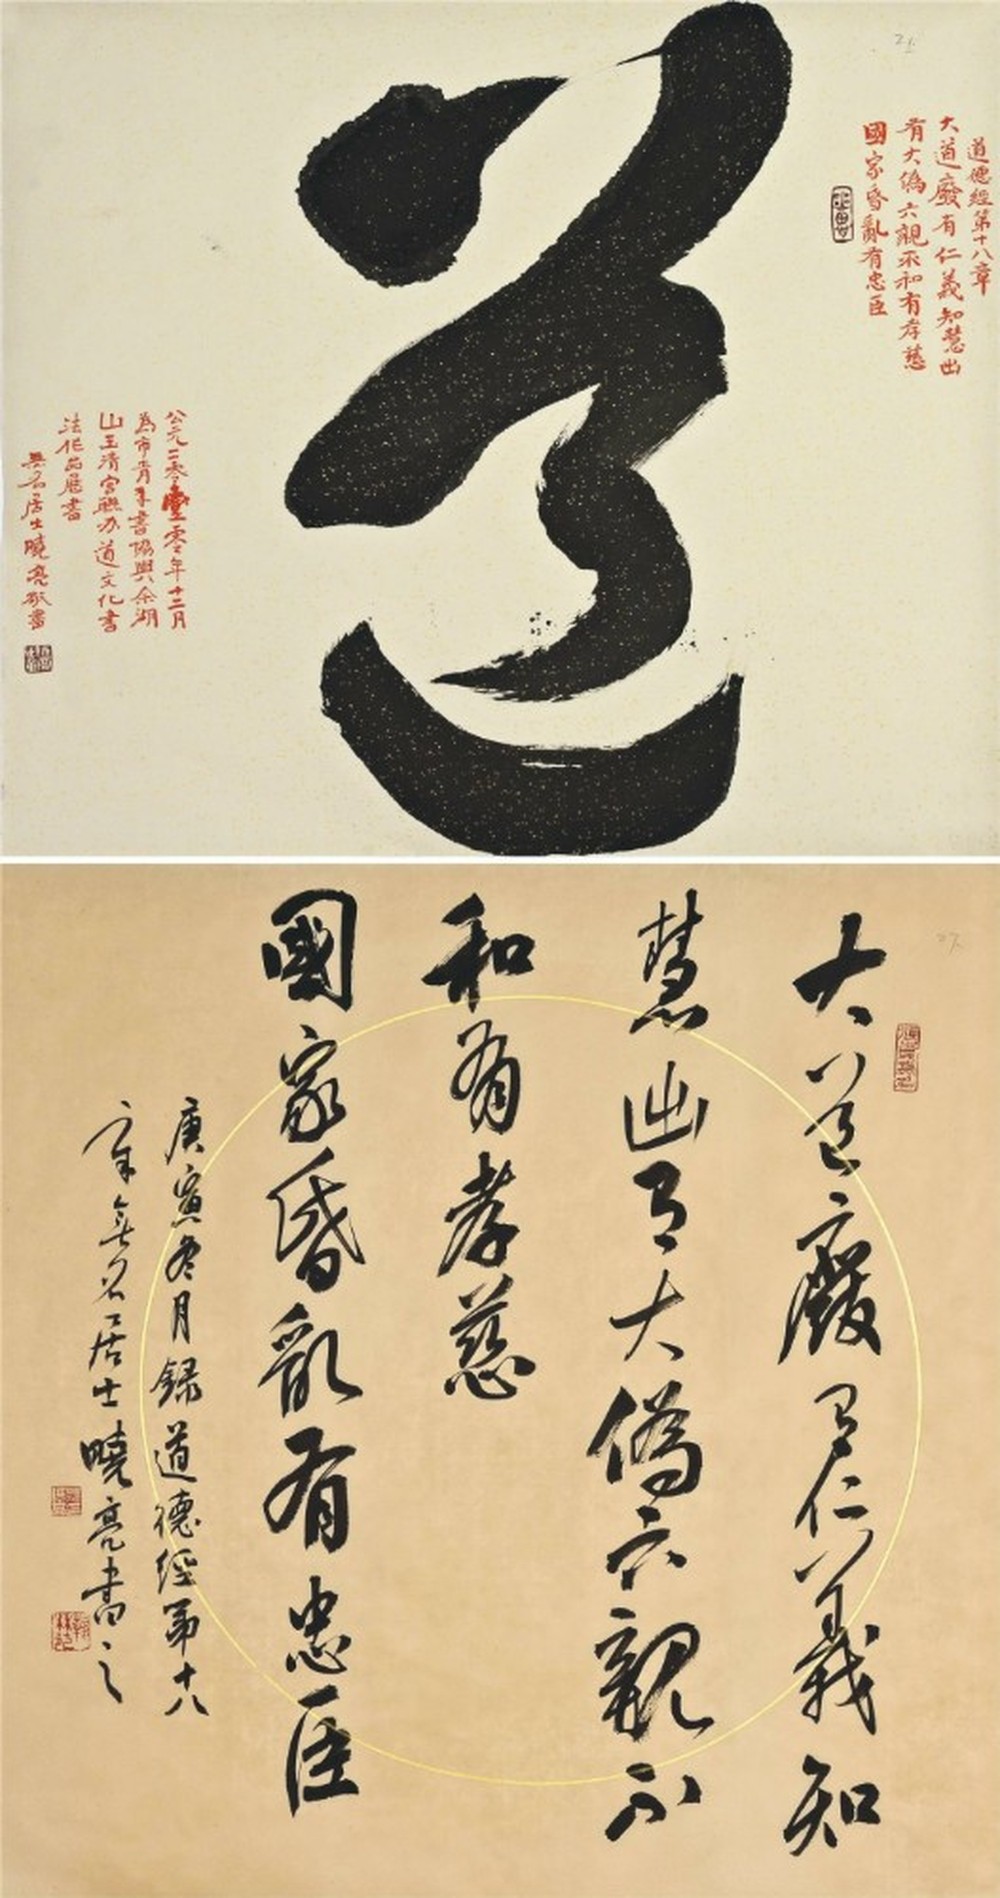 道
道德經第十八章
大道廢有仁義知慧出
有大偽六親不和有孝慈
國家昏亂有忠臣
公元二零壹零年十二月
為市青年書協與余湖
山玉清宮聯办道文化書
法作品展書
無名居士曉亮敬書
大道廢有仁義知
慧出有大偽六親不
和有孝慈
國家昏亂有忠臣
庚寅冬月錄道德經第十八
章無名居士曉亮書之